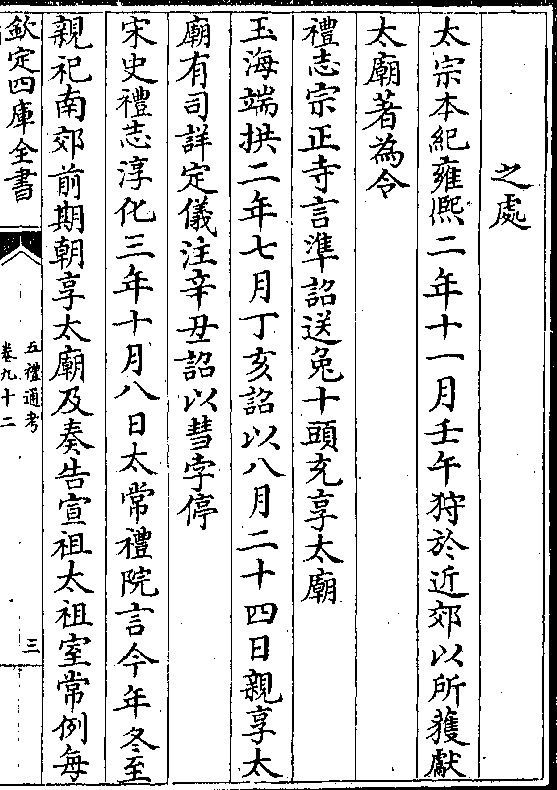 之處
太宗本紀雍熈二年十一月壬午狩於近郊以所獲獻
太廟著為令
禮志宗正寺言準詔送兔十頭充享太廟
玉海端拱二年七月丁亥詔以八月二十四日親享太
廟有司詳定儀注辛丑詔以彗孛停
宋史禮志淳化三年十月八日太常禮院言今年冬至
親祀南郊前期朝享太廟及奏告宣祖太祖室常例每
欽定四庫全書
五禮通考
卷九十二
三